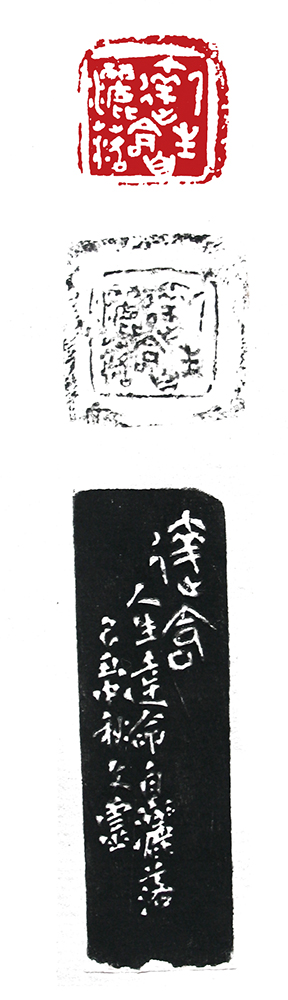 人生
達命自
灑落
人生
達命自
灑落
達命
人生達命自灑落
己丑中秋文靈